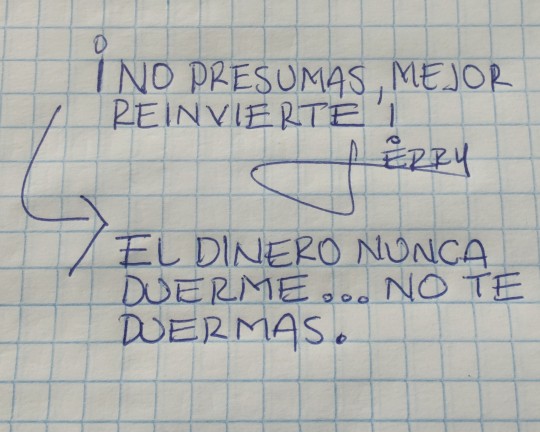 ¡NO PRESUMAS, MEJOR
REINVIERTE!
JERRY
EL DINERO NUNCA
DUERME... NO TE
DUERMAS.